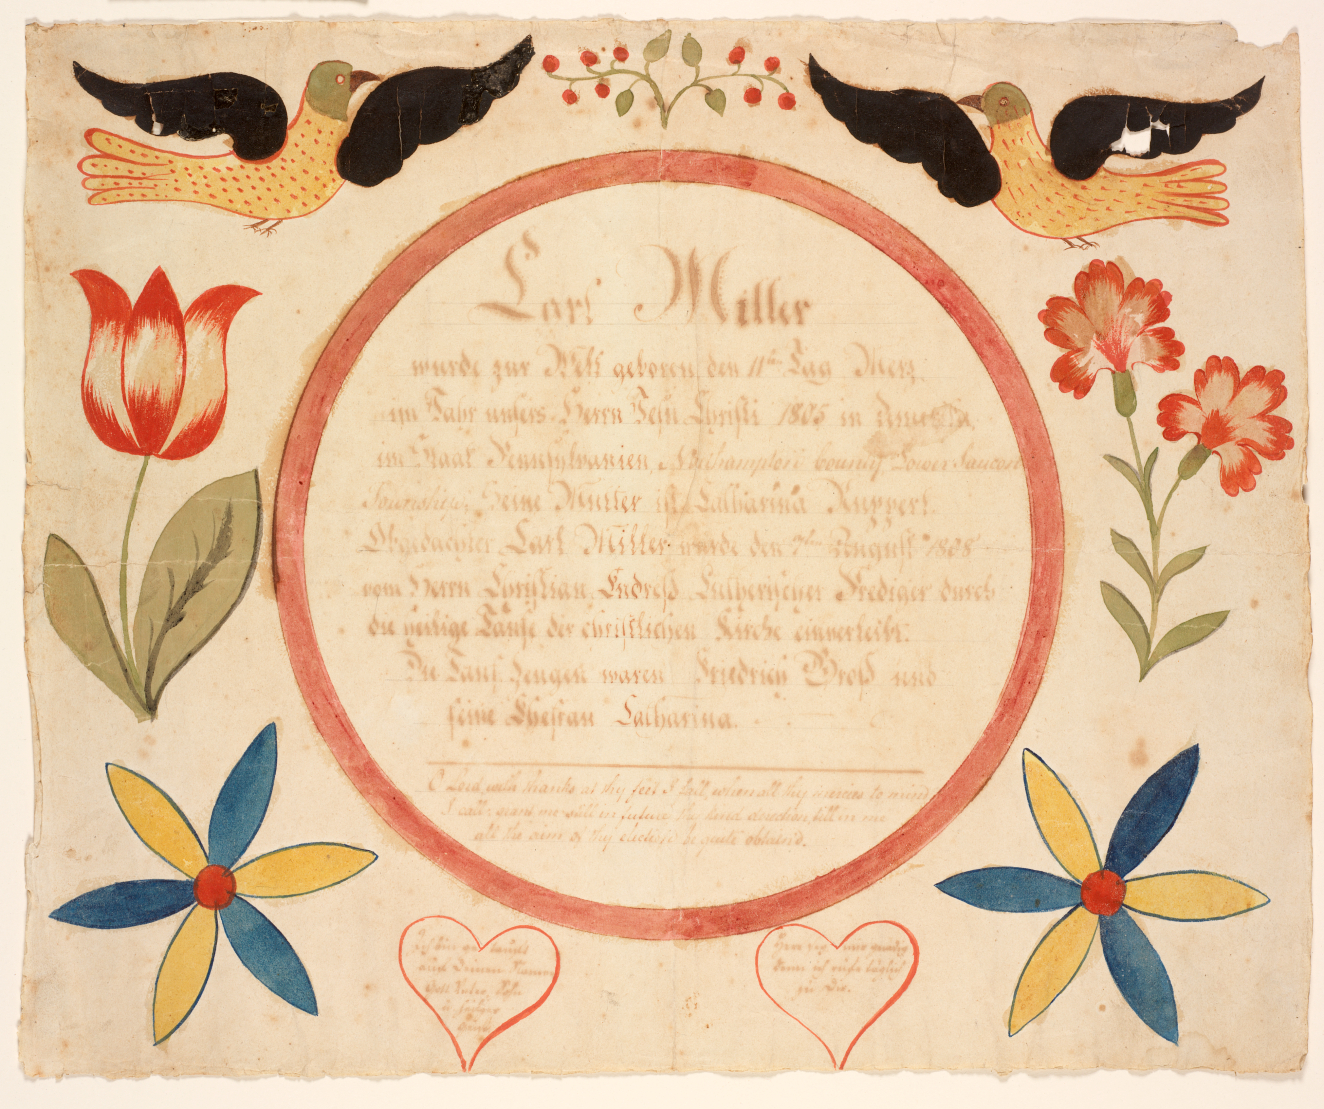 Carl Miller
wurde zur Welt geboren den 11ten Tag Merz
im Jahr unsers Herrn Jesu Christi 1805 in America
im Staat Pennsylvanien, Northampton county Lower Saucon
Township, Seine Mutter ist Catharina Ruppert.
Obgedachter Carl Miller wurde den 7ten August 1805
vom Herrn Christian Endreß Lutherischer Prediger durch
die heilige Taufe der christlichen Kirche einverleibt.
Die Tauf Zeugen waren Friedrich Groß und
seine Ehefrau Catharina.
O Lord, with thanks at thy feet I fall, when all thy mercies to mind
I call, grant me still in future thy kind direction, fill in me
all the aim of thy election be quite obtain'd.
Ich bin getauft
auf Deinen Namen
Gott Vater, Sohn
Herr sey mir gnädig
denn ich rufe täglich
zu Dir.